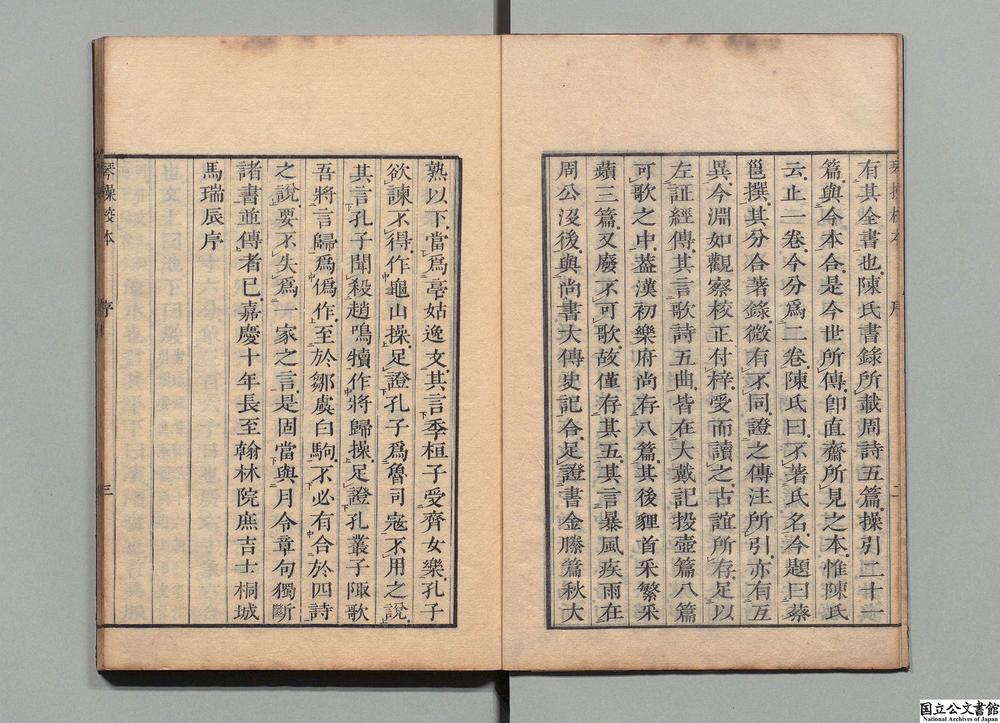 有其全書也陳氏書錄所載周詩五篇操引二十一
篇與今本合是今世所傳卽直齋所見之本惟陳氏
云止一卷今分爲二卷陳氏曰不著氏名今題曰蔡
邕撰其分合著錄微有不同證之傳注所引亦有互
異今淵如觀察校正付梓受而讀之古誼所存足以
左証經傳其言歌詩五曲皆在大戴記投壺篇八篇
可歌之中葢漢初樂府尚存八篇其後貍首采繁采
蘋三篇又廢不可歌故僅存其五其言暴風疾雨在
周公沒後與尚書大傳史記合足證書金縢篇秋大
熟以下當爲亳姑逸文其言季桓子受齊女樂孔子
欲諫不得作龜山操足證孔子爲魯司寇不用之說
其言孔子聞殺趙鳴犢作將歸操足證孔叢子陬歌
吾將言歸爲僞作至於鄒虞白駒不必有合於四詩
之說要不失爲一家之言是固當與月令章句獨斷
諸書並傳者已嘉慶十年長至翰林院庶吉士桐城
馬瑞辰序
琴操校本
序
三
国立公文書館
National Archives of Japan